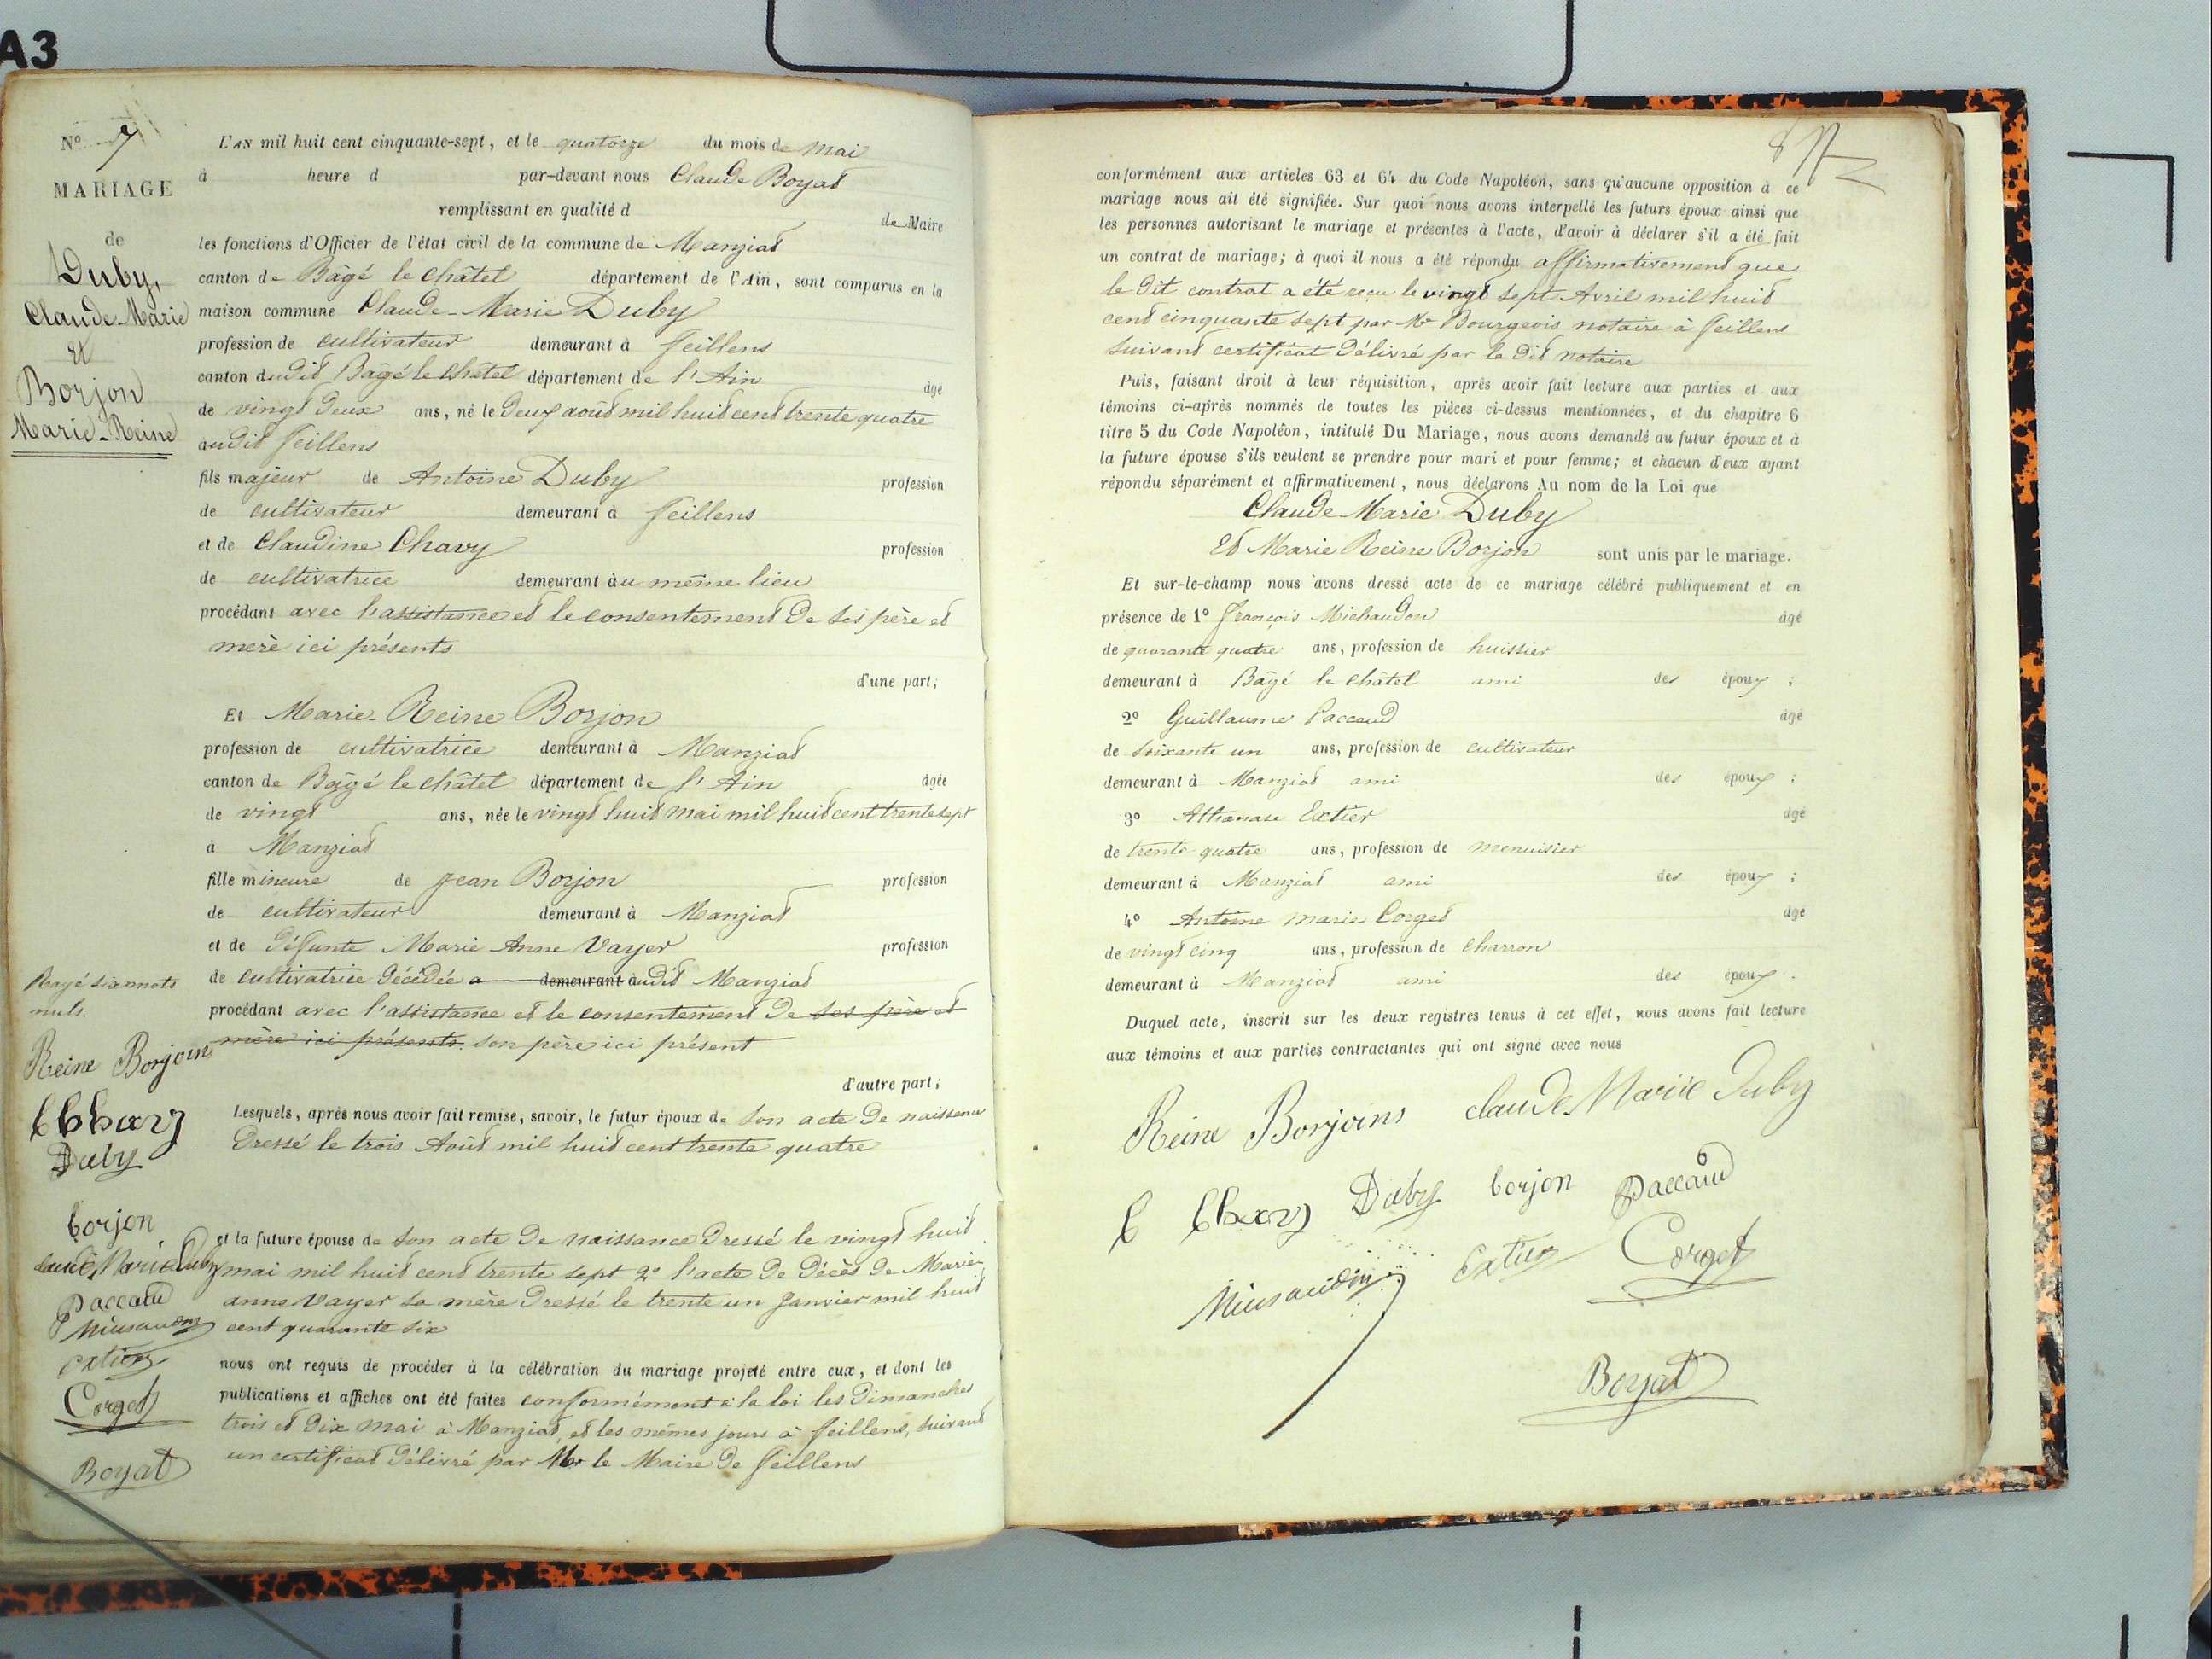 A3
N° 7
MARIAGE
de
Duby,
Claude-Marie
Et
Borjon
Marie-Reine
L'AN mil huit cent cinquante-sept, et le quatorze du mois de Mai
à heure d par-devant nous Claude Boyat
remplissant en qualité d de Maire
les fonctions d'Officier de l'état civil de la commune de Manziat
canton de Bâgé le Châtel département de l'Ain, sont comparus en la
maison commune Claude-Marie Duby
profession de cultivateur demeurant à feillens
canton dudit Bâgé le Châtel département de l'Ain âgé
de vingt deux ans, né le Deux août mil huit cent trente quatre
audit feillens
fils majeur de Antoine Duby profession
de cultivateur demeurant à feillens
et de Claudine Chavy profession
de cultivatrice demeurant àu même lieu
procédant avec l'assistance et le consentement de ses père et
mère ici présents
d'une part;
Et Marie-Reine Borjon
profession de cultivatrice demeurant à Manziat
canton de Bâgé le châtel département de l'Ain âgée
de vingt ans, née le vingt huit mai mil huit cent trente sept
à Manziat
fille mineure de Jean Borjon profession
de cultivateur demeurant à Manziat
et de défunte Marie Anne Vayer profession
de cultivatrice décédée a demeurant àudit Manziat
procédant avec l'assistance et le consentement de ses père et
mère ici présents. son père ici présent
d'autre part;
Rayé six mots
nuls.
Reine Borjoins
C Chavy
Duby
Borjon
Claude Marie Duby
Paccaud
Extier
Corget
Boyat
Lesquels, après nous avoir fait remise, savoir, le futur époux de son acte de naissance
Dressé le trois Août mil huit cent trente quatre
et la future épouse de son acte de naissance dressé le vingt huit
mai mil huit cent trente sept 2° l'acte de décès de Marie
anne Vayer sa mère dressé le trente un Janvier mil huit
cent quarante six
nous ont requis de procéder à la célébration du mariage projeté entre eux, et dont les
publications et affiches ont été faites conformément à la loi les Dimanches
trois et dix mai à Manziat, et les mêmes jours à feillens, suivant
un certificat délivré par Mr le Maire de feillens
conformément aux articles 63 et 64 du Code Napoléon, sans qu'aucune opposition à ce
mariage nous ait été signifiée. Sur quoi nous avons interpellé les futurs époux ainsi que
les personnes autorisant le mariage et présentes à l'acte, d'avoir à déclarer s'il a été fait
un contrat de mariage; à quoi il nous a été répondu affirmativement que
le dit contrat a été reçu le vingt sept Avril mil huit
cent cinquante sept par Me Bourgeois notaire à feillens
suivant certificat délivré par le dit notaire
Puis, faisant droit à leur réquisition, après avoir fait lecture aux parties et aux
témoins ci-après nommés de toutes les pièces ci-dessus mentionnées, et du chapitre 6
titre 5 du Code Napoléon, intitulé Du Mariage, nous avons demandé au futur époux et à
la future épouse s'ils veulent se prendre pour mari et pour femme; et chacun d'eux ayant
répondu séparément et affirmativement, nous déclarons Au nom de la Loi que
Claude Marie Duby
Et Marie Reine Borjon sont unis par le mariage.
Et sur-le-champ nous avons dressé acte de ce mariage célébré publiquement et en
présence de 1° François Michaudon âgé
de quarante quatre ans, profession de huissier
demeurant à Bâgé le châtel ami des époux ;
2° Guillaume Paccaud âgé
de soixante un ans, profession de cultivateur
demeurant à Manziat ami des époux ;
3° Athanase Extier âgé
de trente quatre ans, profession de menuisier
demeurant à Manziat ami des époux ;
4° Antoine Marie Corget âgé
de vingt cinq ans, profession de Charron
demeurant à Manziat ami des époux .
Duquel acte, inscrit sur les deux registres tenus à cet effet, nous avons fait lecture
aux témoins et aux parties contractantes qui ont signé avec nous
Reine Borjoins Claude Marie Duby
C Chavy Duby Borjon Paccaud
Extier Corget
Boyat